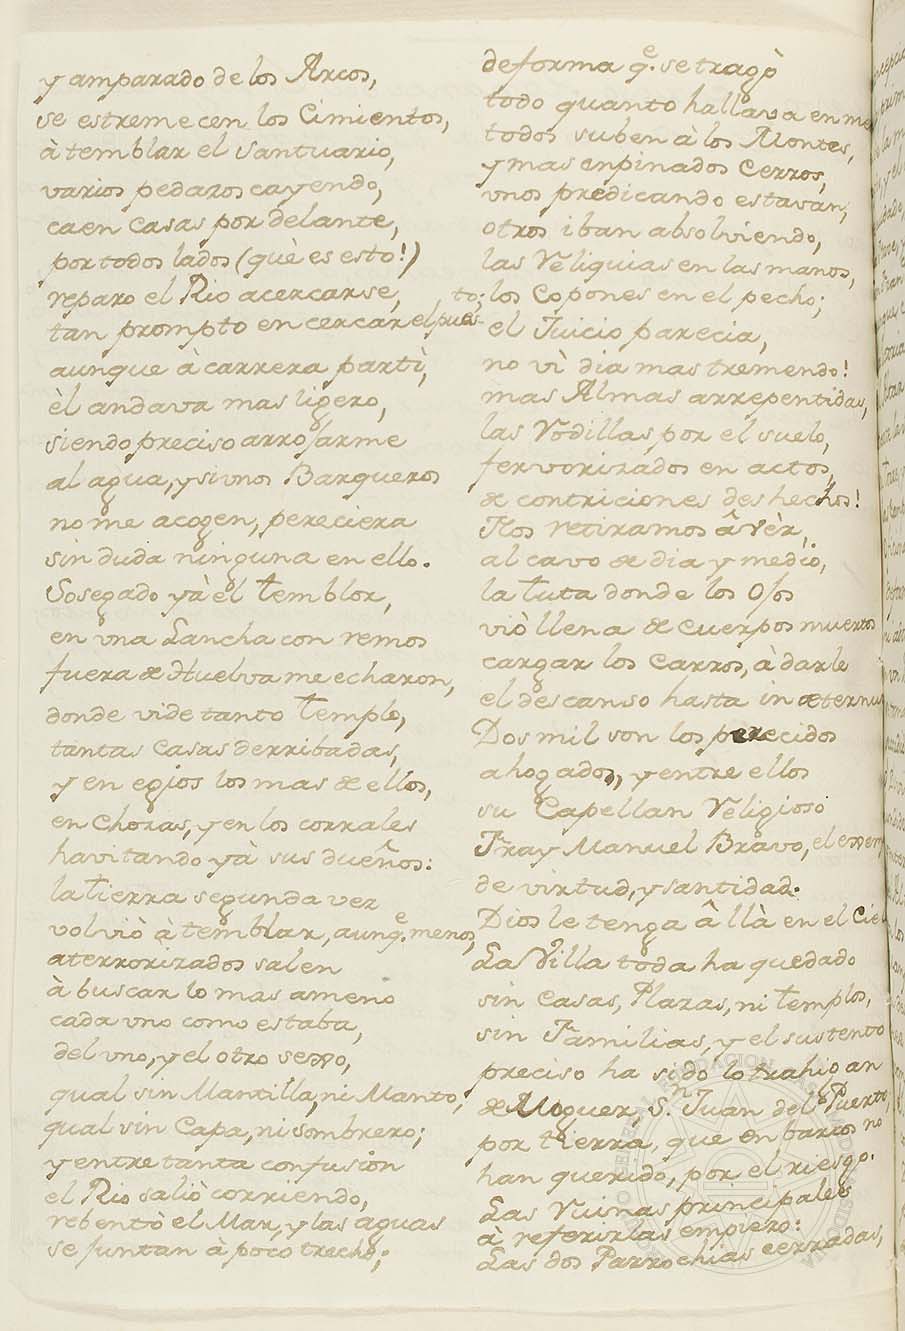 y amparado de los Arcos,
se estremecen los Cimientos,
à temblar el Santuario,
varios pedazos cayendo,
caen Casas por delante,
por todos lados (què es esto!)
reparo el Rio acercarse,
tan prompto en cercar el puesto;
aunque à carrera partì,
èl andava mas ligero,
siendo preciso arrojarme
al agua, y si unos Barqueros
no me acogen, pereciera
sin duda ninguna en ello.
Sosegado yà el temblor,
en vna Lancha con remos
fuera de Huelva me echaron,
donde vide tanto templo,
tantas Casas derribadas,
y en egios los mas de ellos,
en Chozas, y en los corrales
havitando yà sus dueños:
la tierra segunda vez
volviò à temblar, aunqe. menos,
aterrorizados salen
à buscar lo mas ameno
cada vno como estaba,
del vno, y el otro sexo,
qual sin Mantilla, ni Manto,
qual sin Capa, ni sombrero;
y entre tanta confusion
el Rio saliò corriendo,
rebentò el Mar, y las aguas
se juntan à poco trecho;
de forma qe. se tragò
todo quanto hallava en me
todos suben à los Montes,
y mas enpinados Cerros,
vnos predicando estavan,
otros iban absolviendo,
las Reliquias en las manos,
los Copones en el pecho;
el Juicio parecia,
no vì dia mas tremendo!
mas Almas arrepentidas,
las Rodillas por el suelo,
fervorizados en actos,
de contriciones deshechos!
Nos retiramos â vèr,
al cavo de dia y medio,
la tuta donde los Ojos
viò llena de cuerpos muertos
cargar los Carros, à darle
el descanso hasta in æternu
Dos mil son los perecidos
ahogados, y entre ellos
su Capellan Religioso
Fray Manuel Bravo, el exem
de virtud, y santidad.
Dios le tenga â llà en el Cie
La Villa toda ha quedado
sin Casas, Plazas, ni templos,
sin Familias, y el sustento
preciso ha sido lo trahigan
de Moguer, Sn. Juan del Puerto,
por tierra, que en barcos no
han querido, por el riesgo.
Las Ruinas principales
à referirlas empiezo:
Las dos Parrochias cerradas,